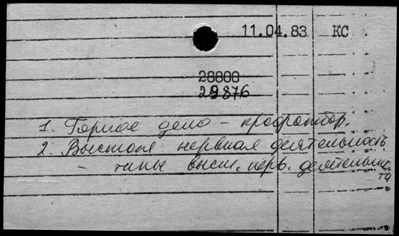 11.04.83 КС
28800
29876
1. Горное дело – профотбор.
2. Высшая нервная деятельность
– типы высш. нерв. деятельности